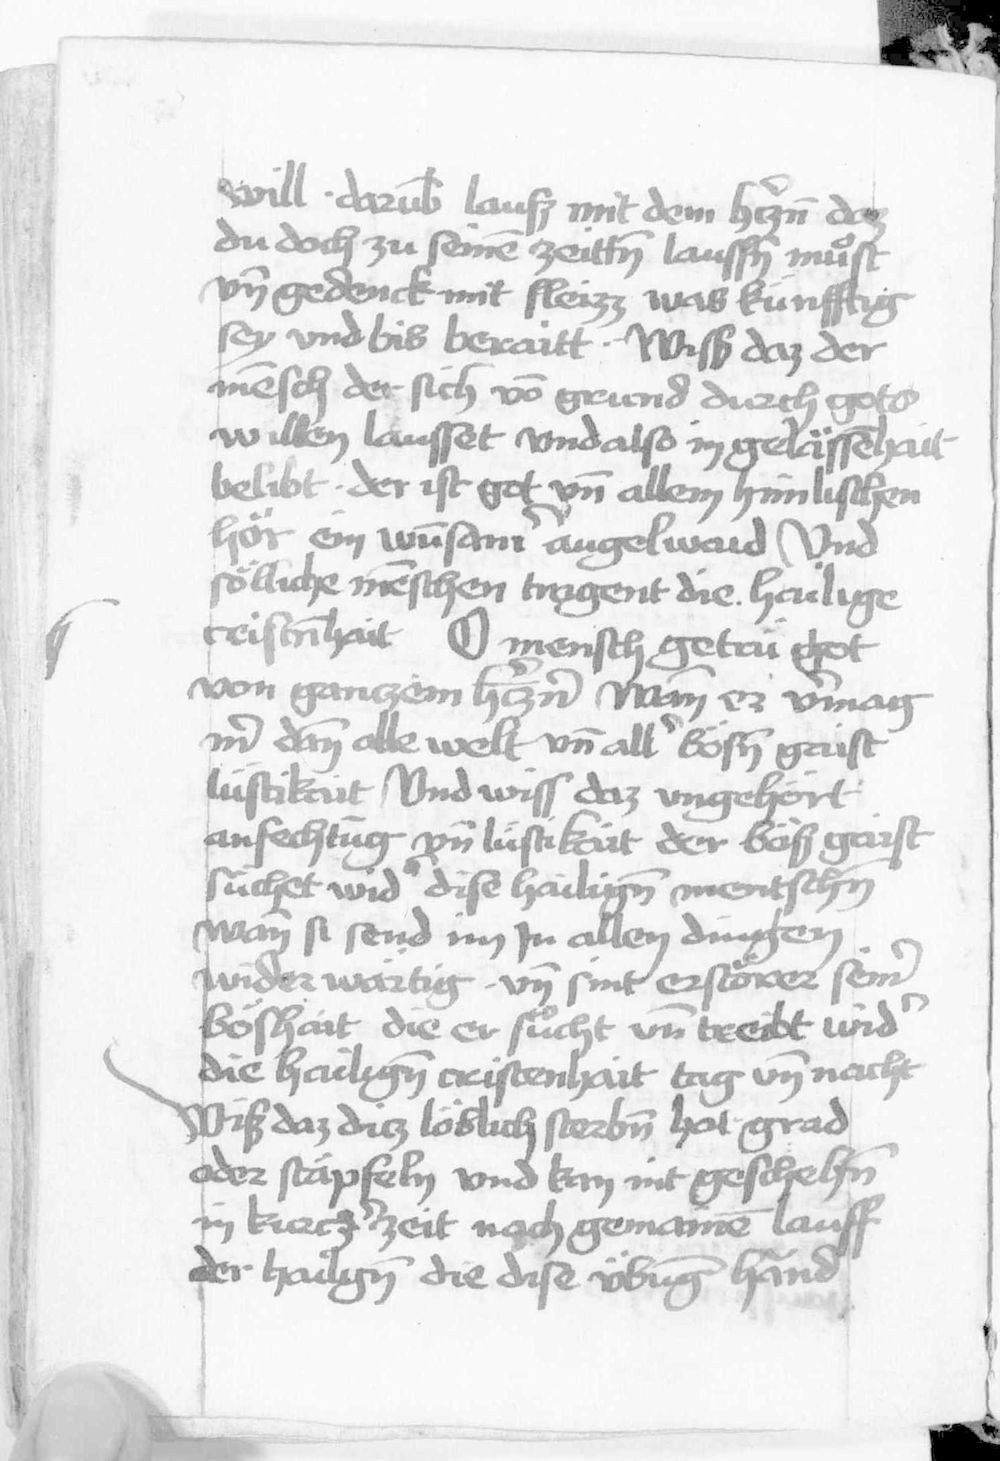 will · darūb lausz mit dem htzn̄ daz
du doch zu seinē zeittn̄ laussn̄ můst
vn̄ gedenck mit fleizz was künfftig
sey vnd bis beraitt · Wissz daz der
mēsch der sich vō grund durch gots
willen lausset vnd also in gelässēhait
belibt · der ist got vn̄ allem himlischen
hör ein wūsamˀ augelwaid Vnd
sölliche mēschen tragent die hailige
cristn̄hait O mensch getrü got
von gantzem htzn̄ Wan̄ er v̄mag
mˀ dan̄ alle welt vn̄ allˀ bösn̄ gaist
lüstikait Vnd wiss daz vngehört
anfechtūg vn̄ lüstikait der bösz gaist
sůchet widˀ dise hailign̄ mentschn̄
wan̄ si send im In allen dingen
widerwärtig · vn̄ sint erstörer seinˀ
böshait die er sůcht vn̄ treibt widˀ
die hailign̄ cristenhait tag vn̄ nacht
Wisz daz ditz löblich sterbn̄ hat grad
oder stäpfeln vnd kan nit geschehn̄
in kurtzˀ zeit nach gemainē lauff
der hailign̄ die dise übūg hānd